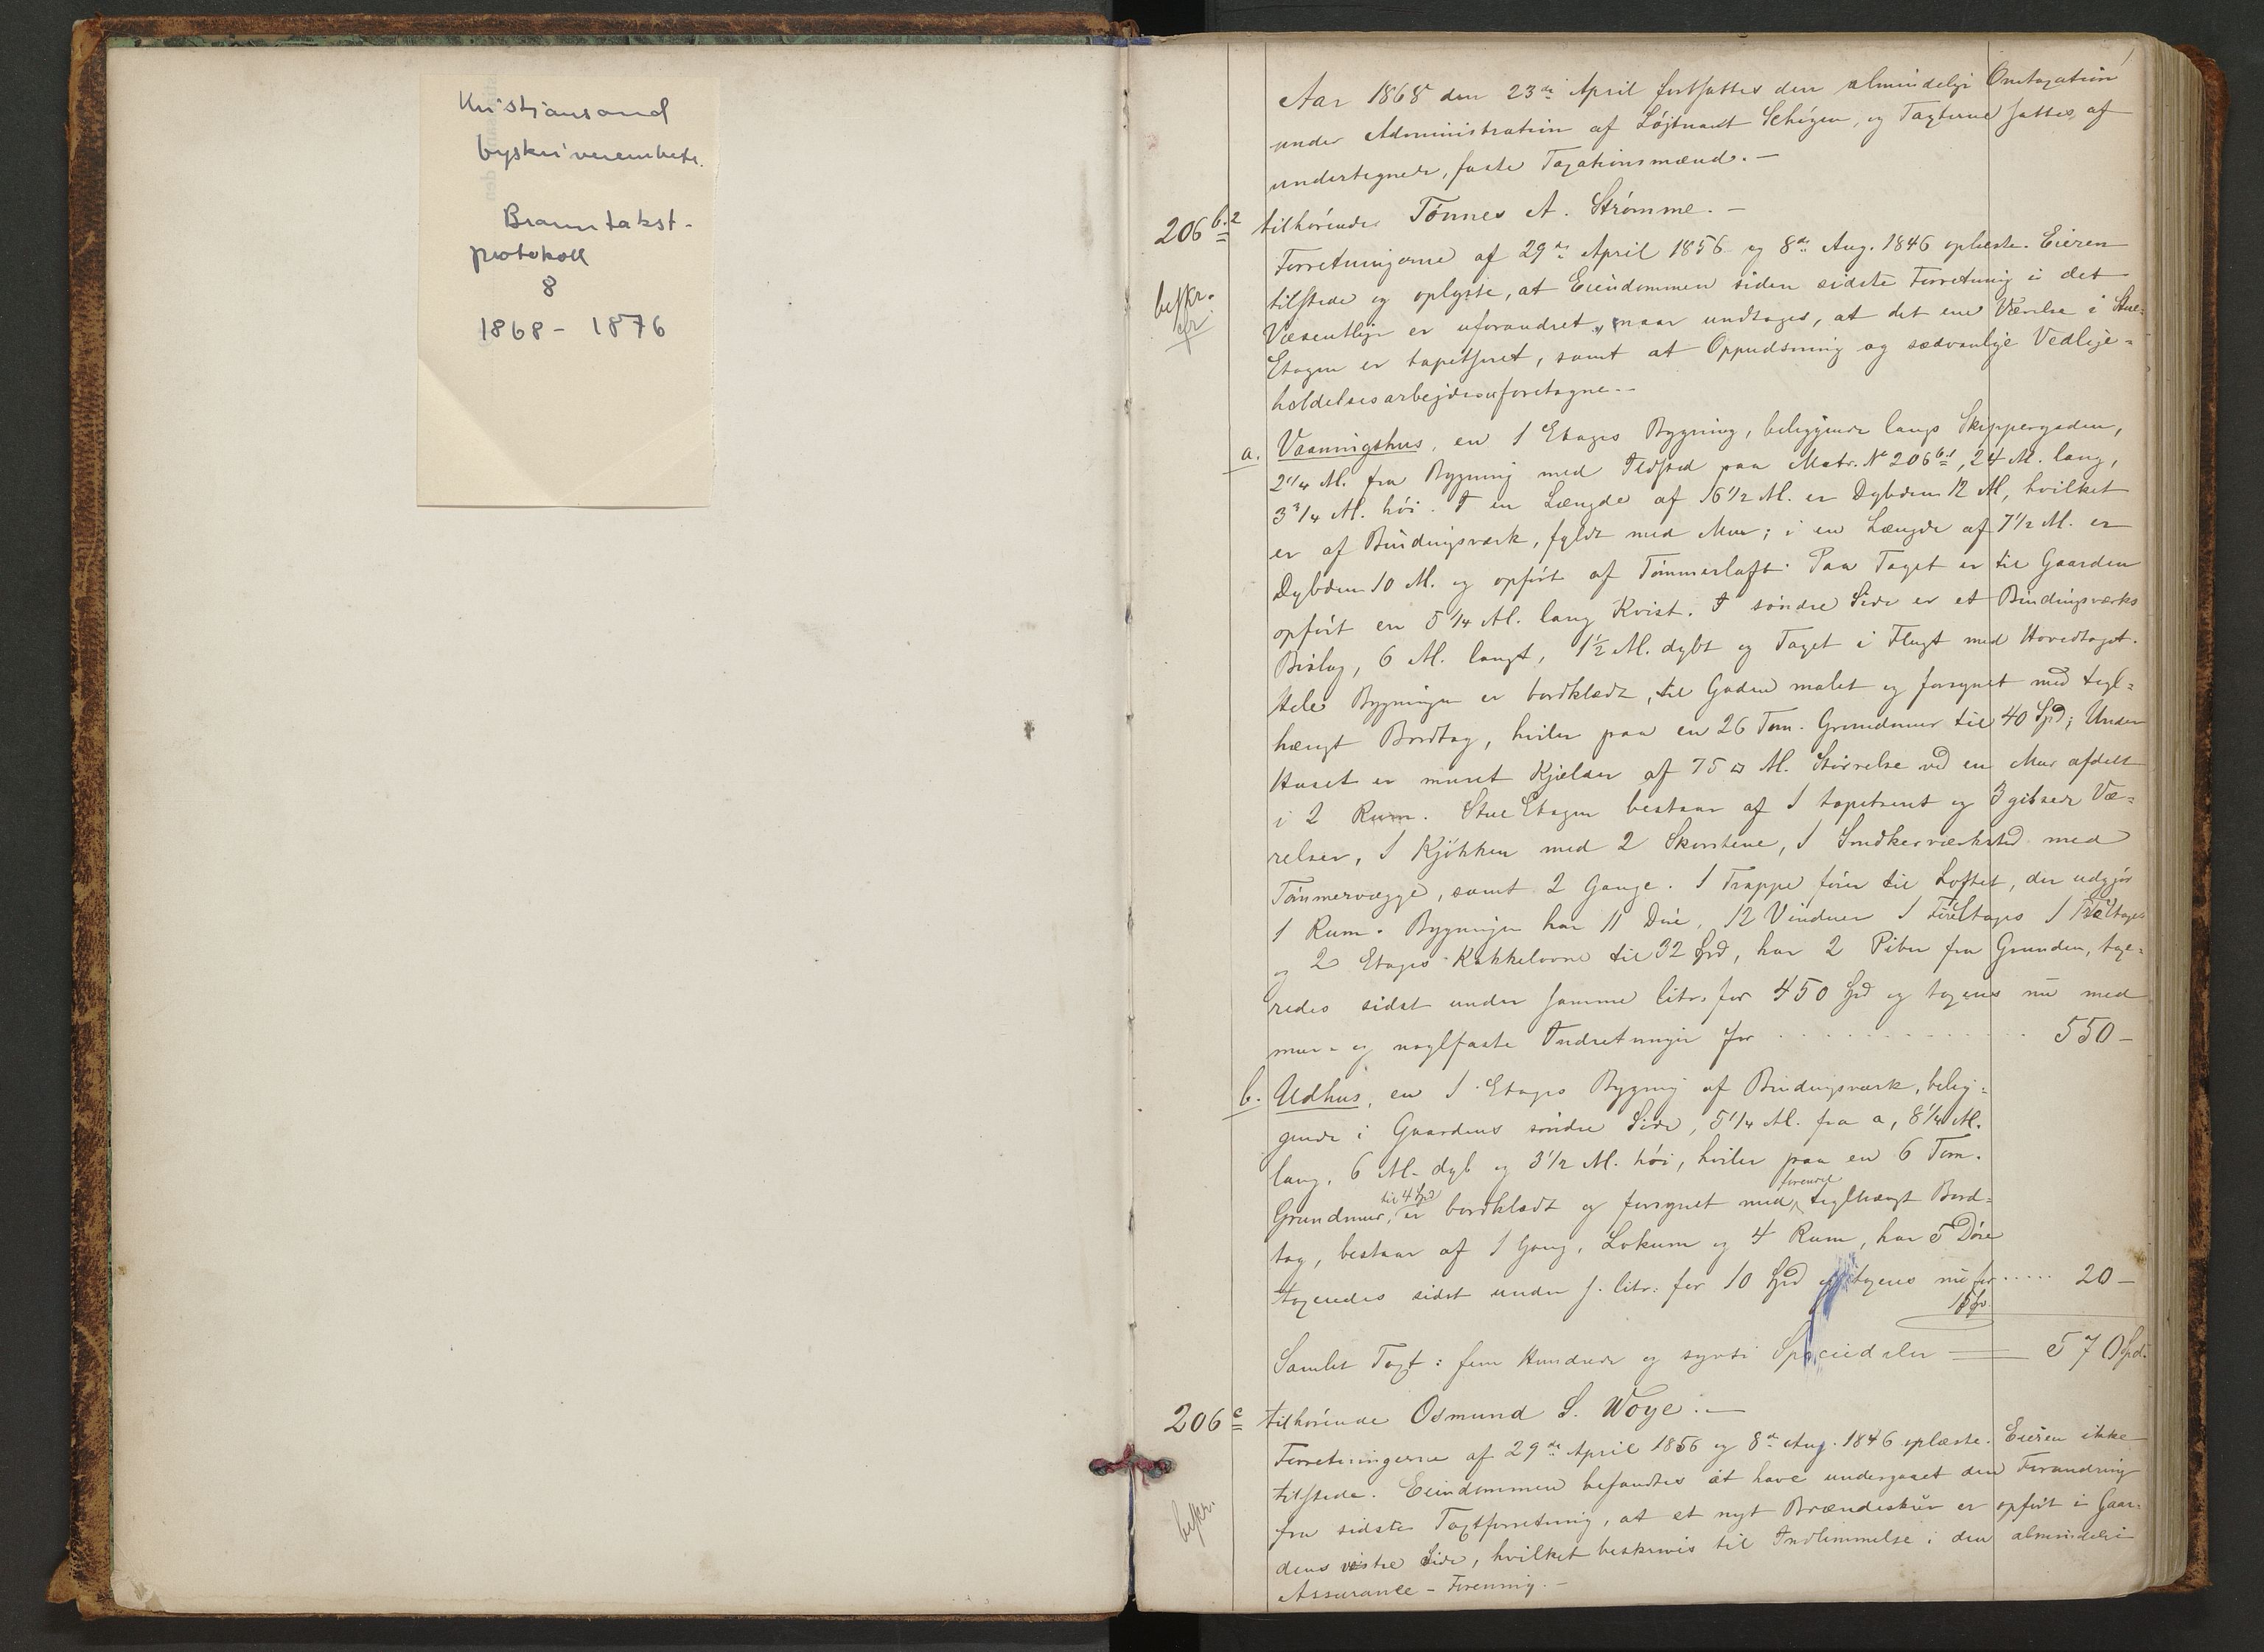 Kristiansand
byskriverembete.
Branntakst-
protokoll
8
1868 - 1876
1
Aar 1868 den 23de April fortsattes den almindelige Omtaxation
under Administration af Løjtnant Schigen, og Taxterne sattes af
undertegnede, faste Taxationsmænd. -
206 b.2 tilhørende Tönnes A. Strømme. -
Forretningerne af 29de April 1856 og 8de Aug. 1846 oplæste. Eieren
beskr. tilstede og oplyste, at Eiendommen siden sidste Forretning i det
Væsentlige er uforandret, naar undtages, at det ene Værelse i Stue-
Etagen er tapetseret, samt at Oppudsning og sædvanlige Vedlige-
holdelsesarbejder er foretagne. -
a. Vaaningshus, en 1 Etages Bygning, beliggende langs Skippergaden,
2 1/4 Al. fra Bygning med Ildsted paa Matr. No 206 b.1, 24 Al. lang,
3 3/4 Al. høi. I en Længde af 16 1/2 Al. er Dybden 12 Al, hvilket
er af Bindingsværk, fyldt med Mur; i en Længde af 7 1/2 Al. er
Dybden 10 Al. og opført af Tømmerlaft. Paa Taget er til Gaarden
opført en 5 1/4 Al. lang Kvist. I søndre Side er et Bindingsværks
Bislag, 6 Al. langt, 1 1/2 Al. dybt og Taget i Flugt med Hovedtaget.
Hele Bygningen er bordklædt, til Gaden malet og forsynet med tegl-
hængt Bordtag, hviler paa en 26 Tom. Grundmur til 40 Spd; Under
Huset er muret Kjælder af 75 □ Al. Størrelse ved en Mur afdelt
i 2 Rum. Stue Etagen bestaar af 1 tapetseret og 3 gibsede Væ-
relser, 1 Kjøkken med 2 Skorstene, 1 Snedkerværksted med
Tømmervægge, samt 2 Gange. 1 Trappe fører til Loftet, der udgjør
1 Rum. Bygningen har 11 Døre, 12 Vinduer 1 FireEtages 1 TreEtages
og 2 Etages Kakkelovne til 32 Spd, har 2 Piber fra Grunden, tax-
redes sidst under samme litr. for 450 Spd og taxeres nu med
mur- og naglfaste Indretninger for . . . . . . . . . . . 550 -
b. Udhus, en 1 Etages Bygning af Bindingsværk, belig-
gende i Gaardens søndre Side, 5 1/4 Al. fra a, 8 1/4 Al.
lang, 6 Al. dyb og 3 1/2 Al. høi, hviler paa en 6 Tom.
Grundmur, til 4 Spd er bordklædt og forsynet med forenet teglhængt Bord-
tag, bestaar af 1 Gang, Lokum og 4 Rum, har 5 Døre
taxeredes sidst under s. litr. for 10 Spd og taxeres nu for ..... 20 -
Samlet Taxt: fem Hundrede og syvti Speciedaler 570 Spd.
206 c tilhørende Osmund S. Woye. -
Forretningerne af 29de April 1856 og 8de Aug. 1846 oplæste. Eieren ikke
tilstede. Eiendommen befandtes at have undergaaet den Forandring
beskr. fra sidste Taxtforretning, at et nyt Brændeskur er opført i Gaar-
dens vestre Side, hvilket beskrives til Indlemmelse i den almindelige
Assurance - Forening. -